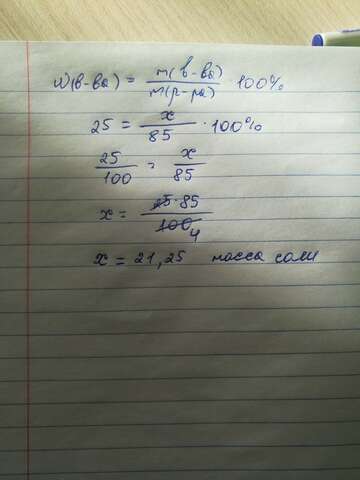 ω(в-ва) = m(в-ва) / m(р-ра) · 100%
25 = x / 85 · 100%
25 / 100 = x / 85
x = 25·85 / 100 4
x = 21,25 масса соли